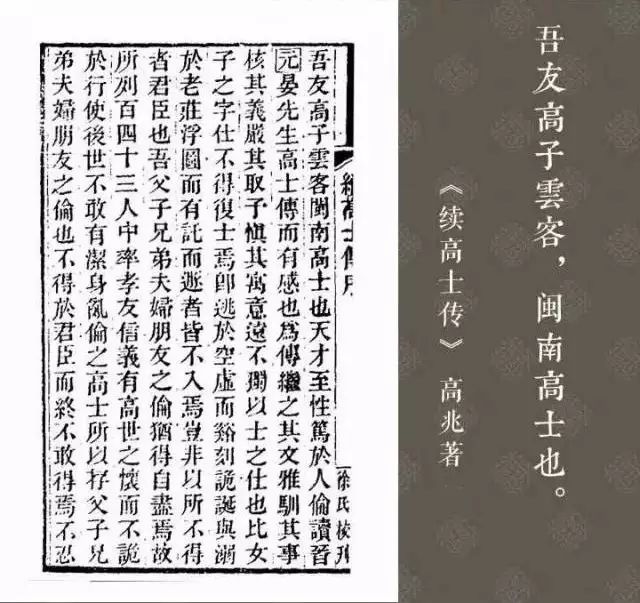 吾友高子雲客，閩南高士也。
《续高士传》 高兆著
續高士傳序
徐氏校刊
吾友高子雲客閩南高士也天才至性篤於人倫讀晉
元晏先生高士傳而有感也爲傳繼之其文雅馴其事
核其義嚴其取予愼其寓意遠不獨以士之仕也比女
子之字仕不得復士焉卽逃於空虛而谿刻詭誕與溺
於老莊浮圖而有託而遯者皆不入焉豈非以所不得
者君臣也吾父子兄弟夫婦朋友之倫猶得自盡焉故
所列百四十三人中率孝友信義有高世之懷而不詭
於行使後世不敢有潔身亂倫之高士所以存父子兄
弟夫婦朋友之倫也不得於君臣而終不敢得焉不忍